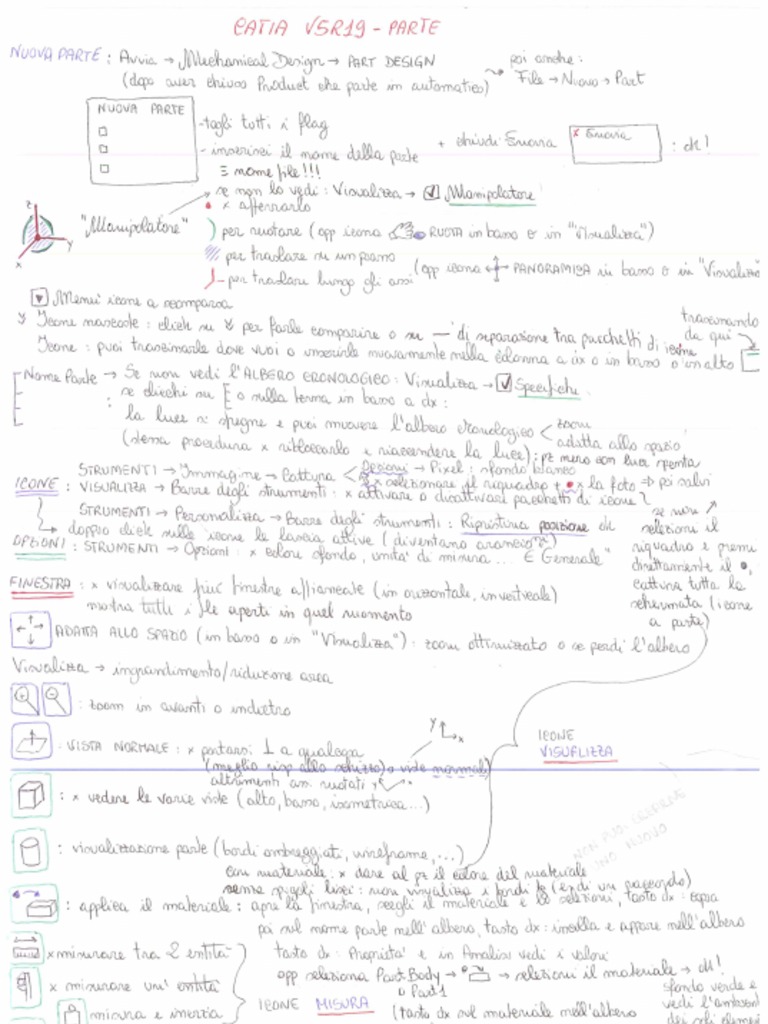 CATIA V5R19 - PARTE
NUOVA PARTE : Avvia → Mechanical Design → PART DESIGN
(dopo aver chiuso Product che parte in automatico)
poi anche:
File → Nuovo → Part
NUOVA PARTE
- togli tutti i flag
- inserisci il nome della parte
≡ nome file!!!
+ chiudi Smovia
x Smovia
: ok!
se non lo vedi: Visualizza → ☑ Manipolatore
"Manipolatore"
z
y
x
• x afferrarlo
) per ruotare (opp icona RUOTA in basso o in "Visualizza")
per traslare su un piano
per traslare lungo gli assi
(opp icona PANORAMICA in basso o in "Visualizza
▼ Menu icone a scomparsa
Icone nascoste : click su per farle comparire o su — di separazione tra pacchetti di icone
Icone : puoi trascinarle dove vuoi o inserirle nuovamente nella colonna a dx o in basso o in alto
trascinando
da qui
Nome Parte → Se non vedi l'ALBERO CRONOLOGICO : Visualizza → ☑ Specifiche
: se clicchi su o sulla terna in basso a dx :
la luce si spegne e puoi muovere l'albero cronologico < zoom
adatta allo spazio
(stessa procedura x ribloccarlo e riaccendere la luce); pz nero con luce spenta
STRUMENTI → Immagine → Cattura < Opzioni → Pixel : sfondo bianco
x selezionare il riquadro + • x la foto ⇒ poi salvi
ICONE : VISUALIZZA → Barre degli strumenti : x attivare o disattivare pacchetti di icone
STRUMENTI → Personalizza → Barre degli strumenti : Ripristina posizione ok
doppio click sulle icone le lascia attive (diventano arancio)
OPZIONI : STRUMENTI → Opzioni : x colore sfondo, unità di misura... È Generale"
se non
selezioni il
riquadro e premi
direttamente il •,
cattura tutta la
schermata (icone
a parte)
FINESTRA : x visualizzare più finestre affiancate (in orizzontale, in verticale)
mostra tutti i file aperti in quel momento
ADATTA ALLO SPAZIO (in basso o in "Visualizza") : zoom ottimizzato o se perdi l'albero
Visualizza → ingrandimento/riduzione area
: zoom in avanti o indietro
: VISTA NORMALE : x portarsi ⊥ a qualcosa
(meglio risp allo schizzo) o viste normali
altrimenti assi ruotati
y
x
ICONE
VISUALIZZA
: x vedere le varie viste (alto, basso, isometrica...)
: visualizzazione parte (bordi ombreggiati, wireframe,...)
con materiale : x dare al pz il colore del materiale
senza spigoli lisci : non visualizza i bordi
: applica il materiale : apre la finestra, scegli il materiale e lo selezioni, tasto dx : copia
poi sul nome parte nell'albero, tasto dx : incolla e appare nell'albero
x misurare tra 2 entità
tasto dx : Proprietà e in Analisi vedi i valori
x misurare un' entità
opp seleziona Part Body → → selezioni il materiale → ok!
o Part1
misura e inerzia
ICONE MISURA
(tasto dx sul materiale nell'albero
sfondo verde e